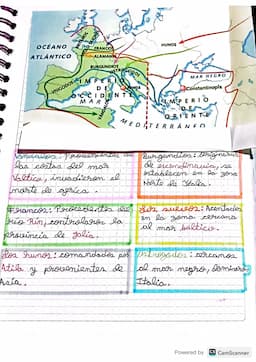 OCÉANO
ATLÁNTICO
FRANCOS
ALAMANES
BURGUNDIOS
HUNOS
VISIGODOS
IMPERIO
DE
OCCIDENTE
MAR
MAR NEGRO
Constantinopla
IMPERIO
DE
ORIENTE
MEDITERRÁNEO
las costas del mar
Báltico, invadieron el
norte de africa.
Burgundios: originarios
de escandinavia, se
establecen en la zona
Norte de Italia.
Francos: Procedentes del
río Rin, controlaron la
provincia de galia.
Los suevos: Asentados
en la zona cercana
al mar báltico.
Los hunos: comandados por
Atila y provenientes de
Asia.
Ostrogodos: cercanos
al mar negro, dominaron
Italia.
Powered by CS CamScanner